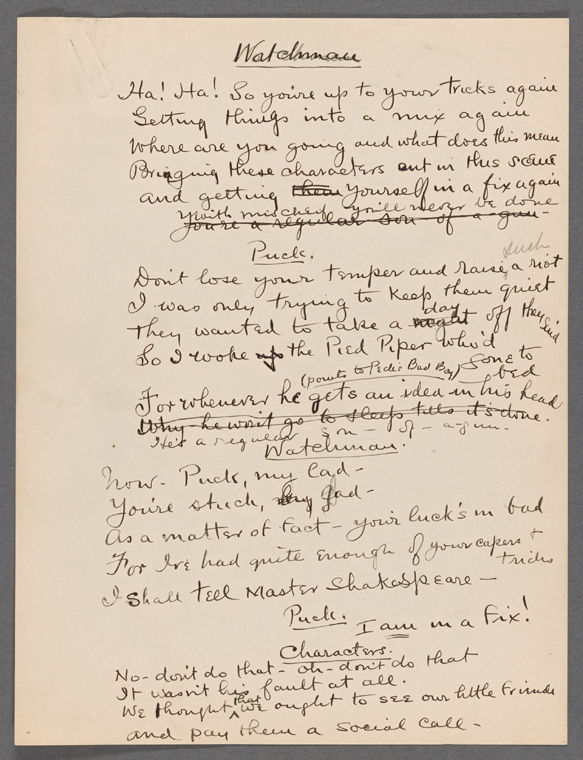 Watchman
Ha! Ha! So you're up to your tricks again
Getting things into a mix again
Where are you going and what does this mean
Bringing these characters out in this scene
and getting them yourself in a fix again
with mischief you'll never be done
You're a regular son of a gun-
Puck.
such
Don't lose your temper and raise a riot
I was only trying to keep them quiet
day
They wanted to take a night off they said
So I woke up the Pied Piper who'd
gone to
bed
(points to Peck's Bad Boy)
For whenever he gets an idea in his head
Why he won't go to sleep till it's done.
He's a regular son - of - a-gun.
Watchman.
Now - Puck, my lad -
You're stuck, my lad -
As a matter of fact - your luck's in bad
For I've had quite enough of your capers +
tricks
I Shall tell Master Shakespeare -
Puck.
I am in a fix!
Characters.
No - don't do that - oh - don't do that
It wasn't his fault at all.
that
We thought we ought to see our little friends
and pay them a social call -